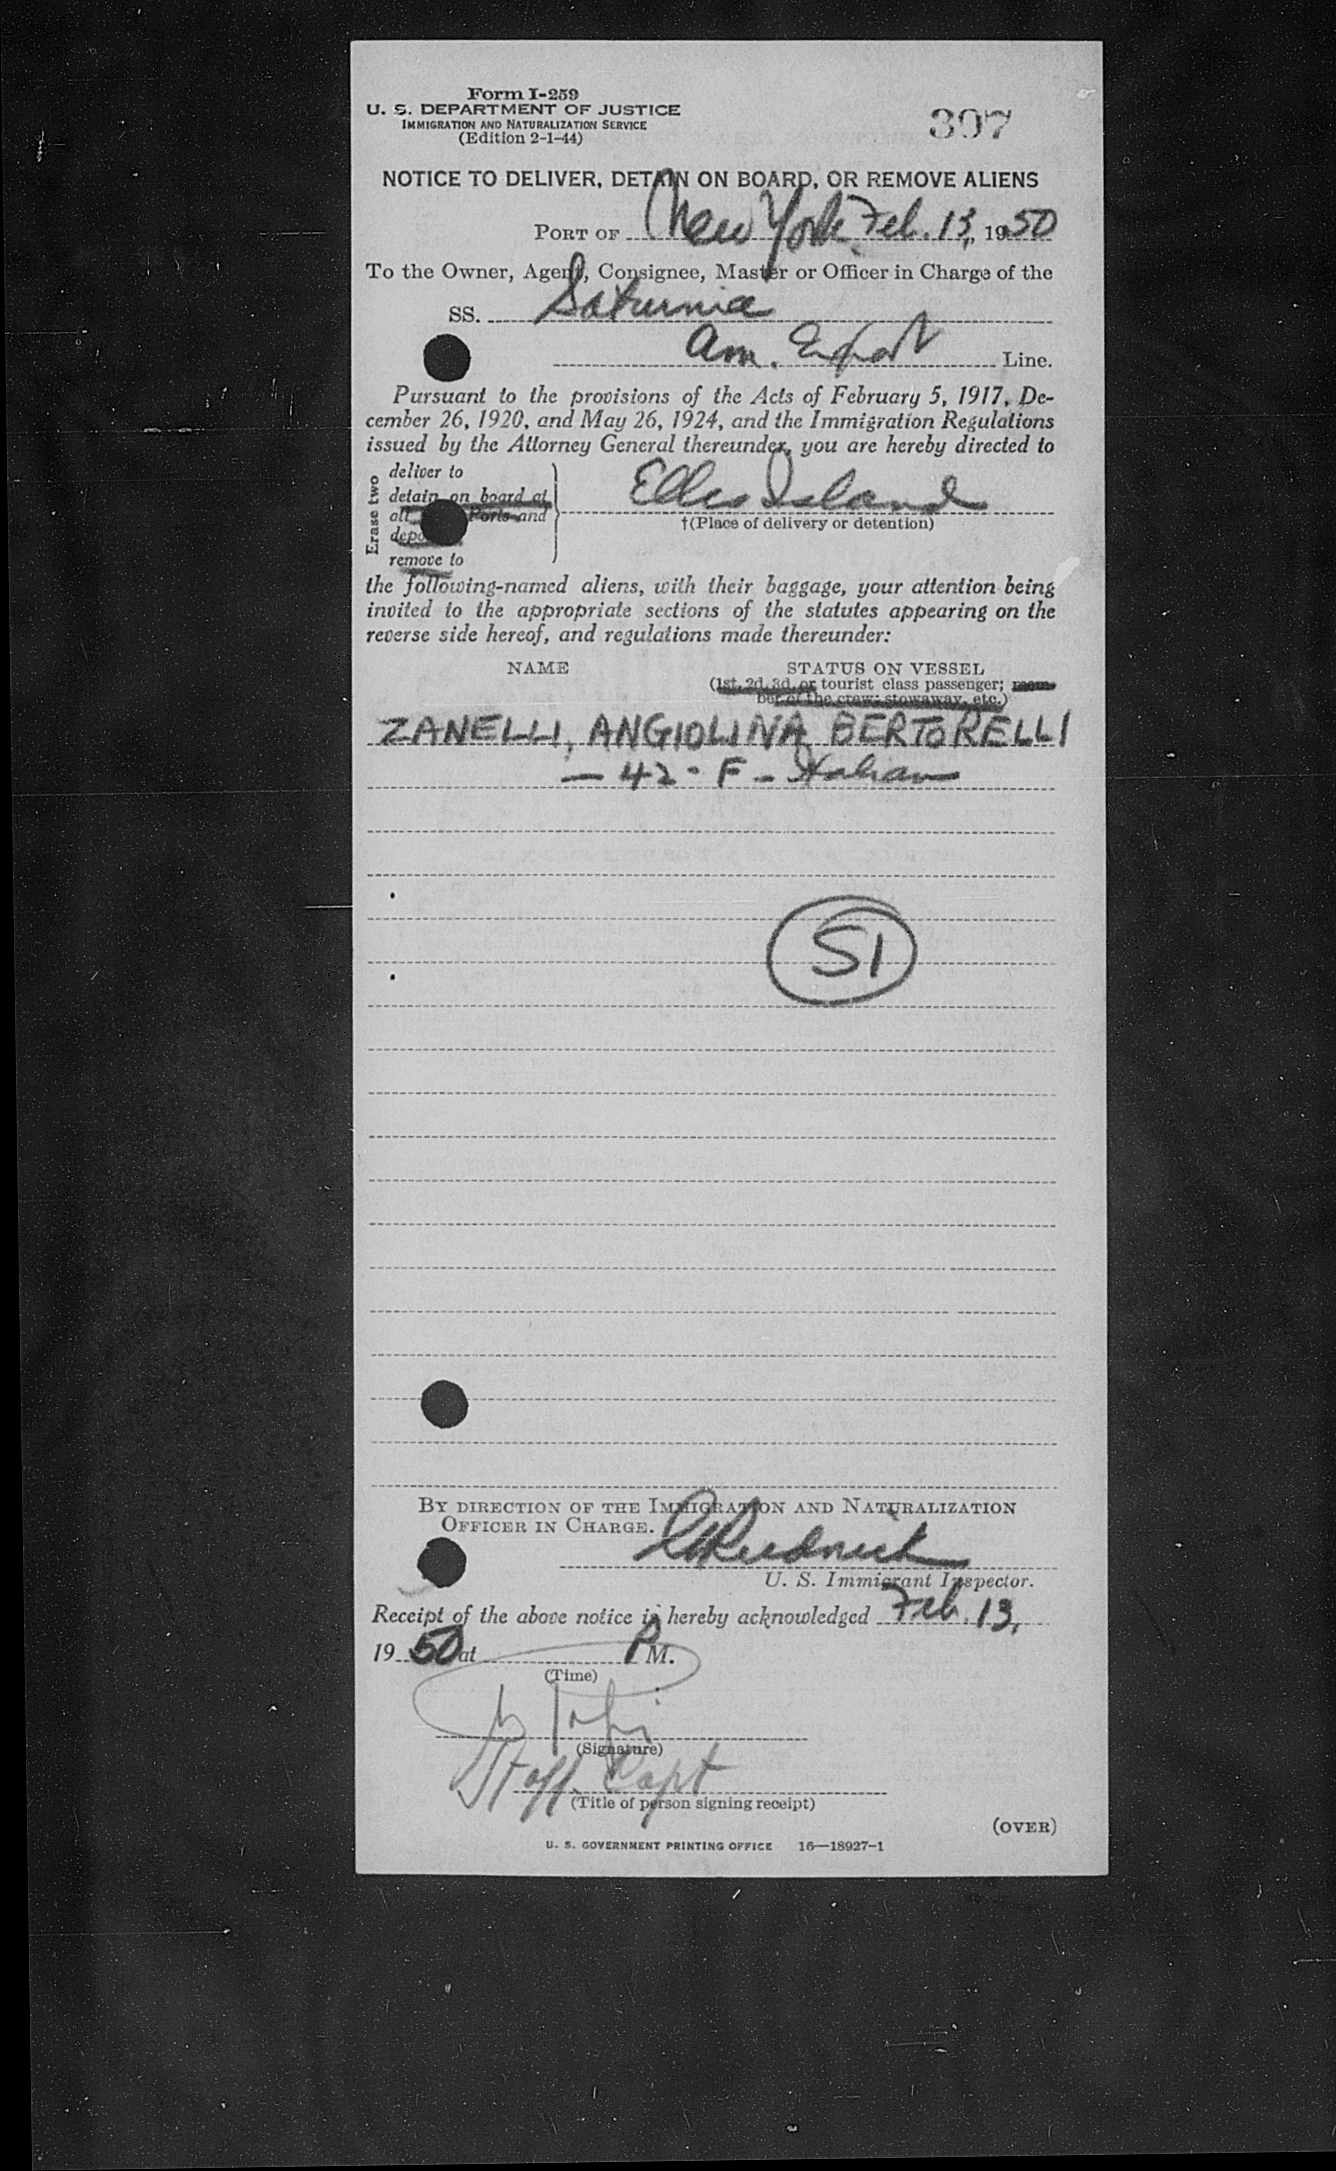 Form I-259
U. S. DEPARTMENT OF JUSTICE
IMMIGRATION AND NATURALIZATION SERVICE
(Edition 2-1-44)
397
NOTICE TO DELIVER, DETAIN ON BOARD, OR REMOVE ALIENS
PORT OF New York, Feb. 13, 1950
To the Owner, Agent, Consignee, Master or Officer in Charge of the
SS. Saturnia
Am. Export Line.
Pursuant to the provisions of the Acts of February 5, 1917, De-
cember 26, 1920, and May 26, 1924, and the Immigration Regulations
issued by the Attorney General thereunder, you are hereby directed to
Erase two
deliver to
detain on board at
all Ports and
remove to
Ellis Island
†(Place of delivery or detention)
the following-named aliens, with their baggage, your attention being
invited to the appropriate sections of the statutes appearing on the
reverse side hereof, and regulations made thereunder:
NAME STATUS ON VESSEL
(1st, 2d, 3d, or tourist class passenger; mem-
ber of the crew; stowaway, etc.)
ZANELLI, ANGIOLINA BERTORELLI
— 42 - F - Italian
SI
BY DIRECTION OF THE IMMIGRATION AND NATURALIZATION
OFFICER IN CHARGE.
Rudnick
U. S. Immigrant Inspector.
Receipt of the above notice is hereby acknowledged Feb. 13,
1950 at P M.
(Time)
(Signature)
Staff. Capt
(Title of person signing receipt)
(OVER)
U. S. GOVERNMENT PRINTING OFFICE 16—18927-1